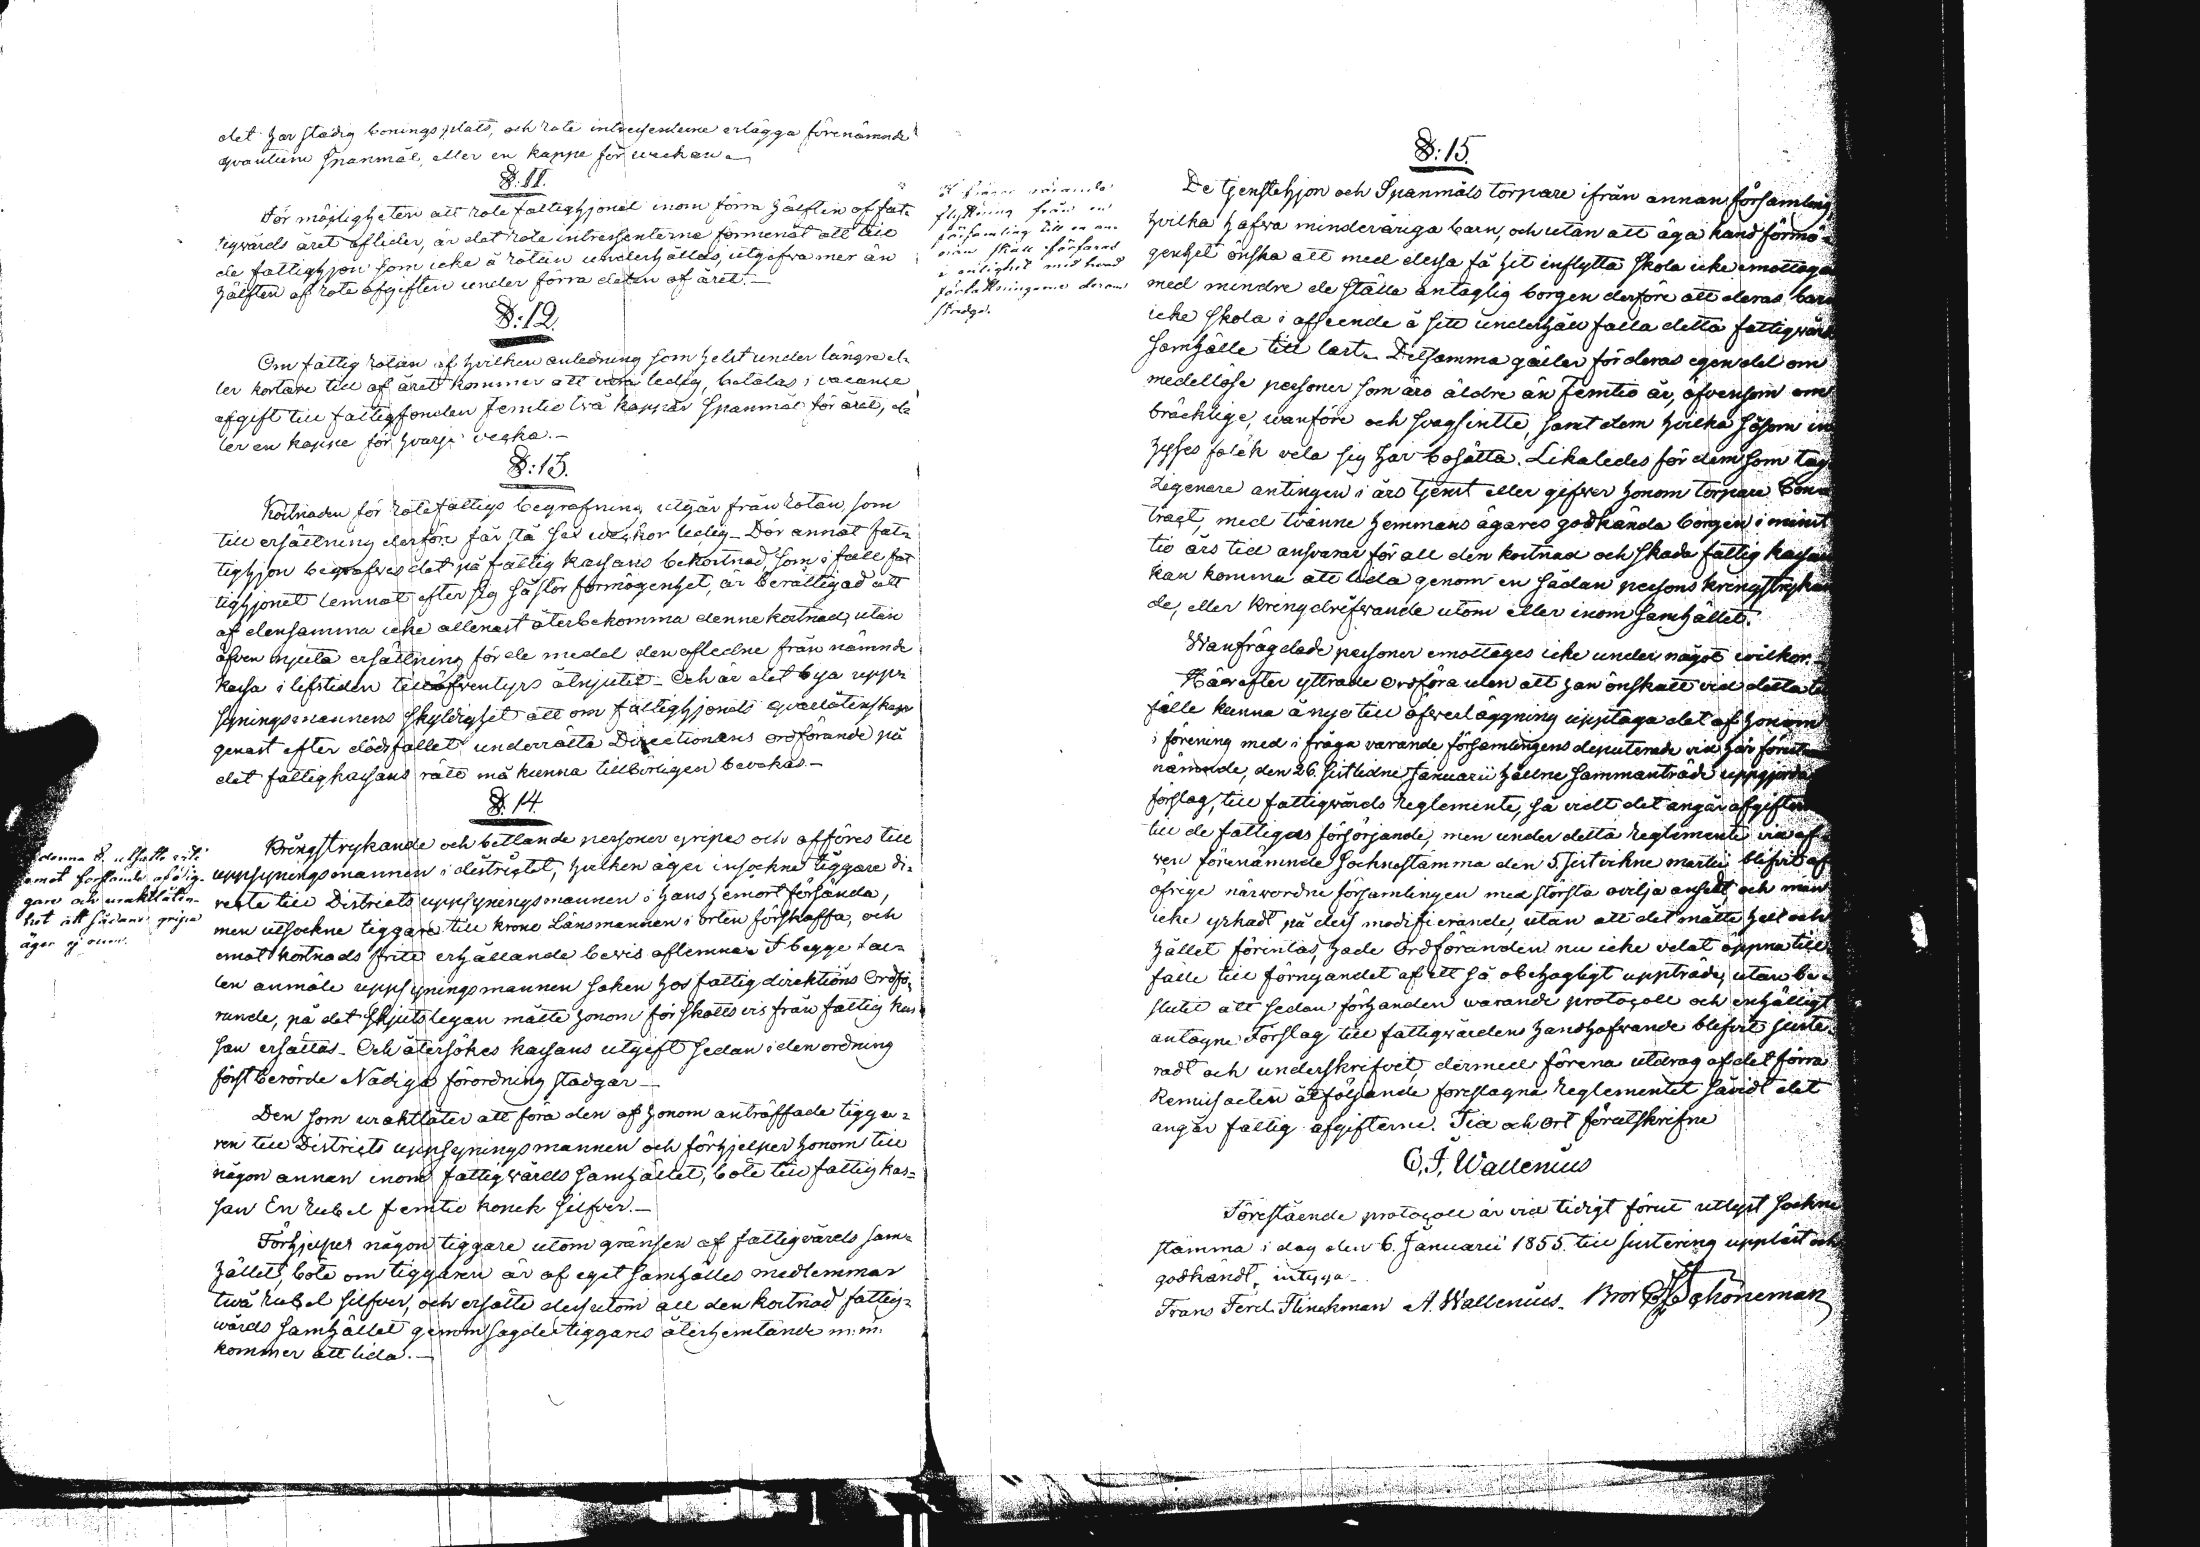 det har städig boningsplats, och rote intressenterne erlägga förenämnde
qvantum Spanmål, eller en kappe för weckan.
§: 11.
För möjligheten att rote fattighjonet inom förra hälften af fat-
tigvårds året aflider, är det rote intressenterne förmenat att till
de fattighjon som icke å rotan underhållas, utgifva mer än
hälften af rote afgiften under förra delen af året.
§: 12.
Om fattig rotan af hvilken anledning som helst under längre el-
ler kortare tid af året kommer att vara ledig, betalas i vacance
afgift till fattigfonden femtio två kappar Spanmål för året, el-
ler en kappe för hvarje vecka.
§: 13.
Kostnaden för rotefattigs begrafning utgår från rotan, som
till ersättning derföre får stå sex weckor ledig. Dör annat fat-
tighjon begrafves det på fattig kassans bekostnad, som i fall fat
tighjonet lemnat efter sig så stor förmögenhet, är berättigad att
af densamma icke allenast återbekomma denne kostnad, utan
äfven njuta ersättning för de medel den aflidne från nämnde
kassa i lifstiden till äfventyrs åtnjutit. Och är det bya upp-
syningsmannens skyldighet att om fattighjonets qvarlåtenskap
genast efter dödsfallet underrätta Directionens ordförande på
det fattigkassans rätt må kunna tillbörligen bevakas.
§. 14.
denna §. utsatte vite
emot
gare och uraktlåten-
het att sådane gripa
äger ej rum.
Kringstrykande och bettlande personer gripes och afföres till
uppsyningsmannen i districtet, hvilken äger insockne tiggare di-
recte till Districts uppsyningsmannen i hans hemort försända,
men utsockne tiggare till krono Länsmannen i orten förskaffa, och
emot kostnads fritt erhållande bevis aflemna. I begge fal-
len anmäle uppsyningsmannen saken hos fattig direktions Ordfö-
rande, på det skjutslegan måtte honom förskottsvis från fattig kas-
san ersättas. Och återsökes kassans utgift sedan i den ordning
först berörde Nådiga förordning stadgar.
Den som uraktlåter att föra den af honom anträffade tigga-
ren till Districts uppsyningsmannen och förhjelper honom till
någon annan inom fattigvårds samhället, böte till fattig kas-
san En Rubel femtio kopek silfver.
Förhjelper någon tiggare utom gränsen af fattigvårds sam-
hället, böte om tiggaren är af eget samhälles medlemmar
två Rubel silfver, och ersätte dessutom all den kostnad fattig-
vårds samhället genom sagde tiggares återhemtande m:m:
kommer att lida.
I frågor varande
flyttning från en
församling till en an-
nan skall förfaras
i enlighet med hvad
författningarne derom
stadga.
§: 15.
De tjenstehjon och Spanmåls torpare ifrån annan församling,
hvilka hafva minderåriga barn, och utan att äga känd förmö-
genhet önska att med dessa få hit inflytta skola icke emottagas
med mindre de ställa antaglig borgen derföre att deras barn
icke skola i afseende å sitt underhåll falla detta fattigvårds
samhälle till last. Detsamma gäller för deras egen del om
medellöse personer som äro äldre än femtio år, äfvensom om
bräcklige, wanföre och svagsinte, samt dem hvilka såsom in
hyses folk vela sig här bosätta. Likaledes för dem som tag
Zigenare antingen i års tjenst eller gifver honom torpare Con-
tract, med tvänne hemmans ägares godkända borgen i minst
tio års tid ansvarar för all den kostnad och skada fattig kassan
kan komma att lida genom en sådan persons kringstrykan
de, eller kringdrifvande utom eller inom samhället.
Wanfrägdade personer emottages icke under något wilkor.
Härefter yttrade ordföranden att han önskat vid detta till
fälle kunna å nyo till öfverläggning upptaga det af honom
i förening med i fråga varande församlingens deputerade vid här förut
nämnde, den 26. sistlidne Januarii hållne sammanträde uppgjorda
förslag, till fattigvårds Reglemente, så vidt det angår afgifterna
till de fattigas försörjande, men under detta Reglemente vid äf-
ven förenämnde Socknestämma den 5. sistvikne martii blifvit af
öfrige närvordne församlingen med största ovilja ansedt och man
icke yrkadt på dess modifierande, utan att det måtte helt och
hållet förintas, hade Ordföranden nu icke velat öppna till-
fälle till förnyandet af ett så obehagligt uppträde, utan be-
slutit att sedan förhanden warande protocoll och enhälligt
antagne Förslag till fattigvårdens handhafvande blifvit juste-
radt och underskrifvit, dermed förena utdrag af det förra
Remiss acten åtföljande föreslagna Reglementet såvidt det
angår fattig afgifterne. Tid och ort förutskrifne
C. J. Wallenius
Förestående protocoll är vid tidigt förut utlyst sockne
stämma i dag den 6. Januarii 1855. till justering uppläst och
godkändt, intyga.
Frans Ferd. Flinckman A. Wallenius. Bror Schöneman